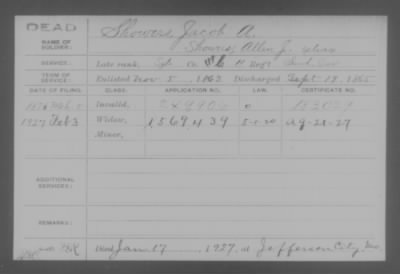 DEAD
NAME OF SOLDIER: Showers, Jacob A.
Showers, Allen J. alias
SERVICE: Late rank, Co. H Regt
TERM OF SERVICE: Enlisted Nov 5, 1863 Discharged Sept 18, 1865
DATE OF FILING. CLASS. APPLICATION NO. LAW. CERTIFICATE NO.
Invalid,
1927 Feb 3 Widow, 1569439 5-1-20 Ag-21-27
Minor,
ADDITIONAL SERVICES:
REMARKS:
Died Jan 17, 1927, at Jefferson City, Mo.